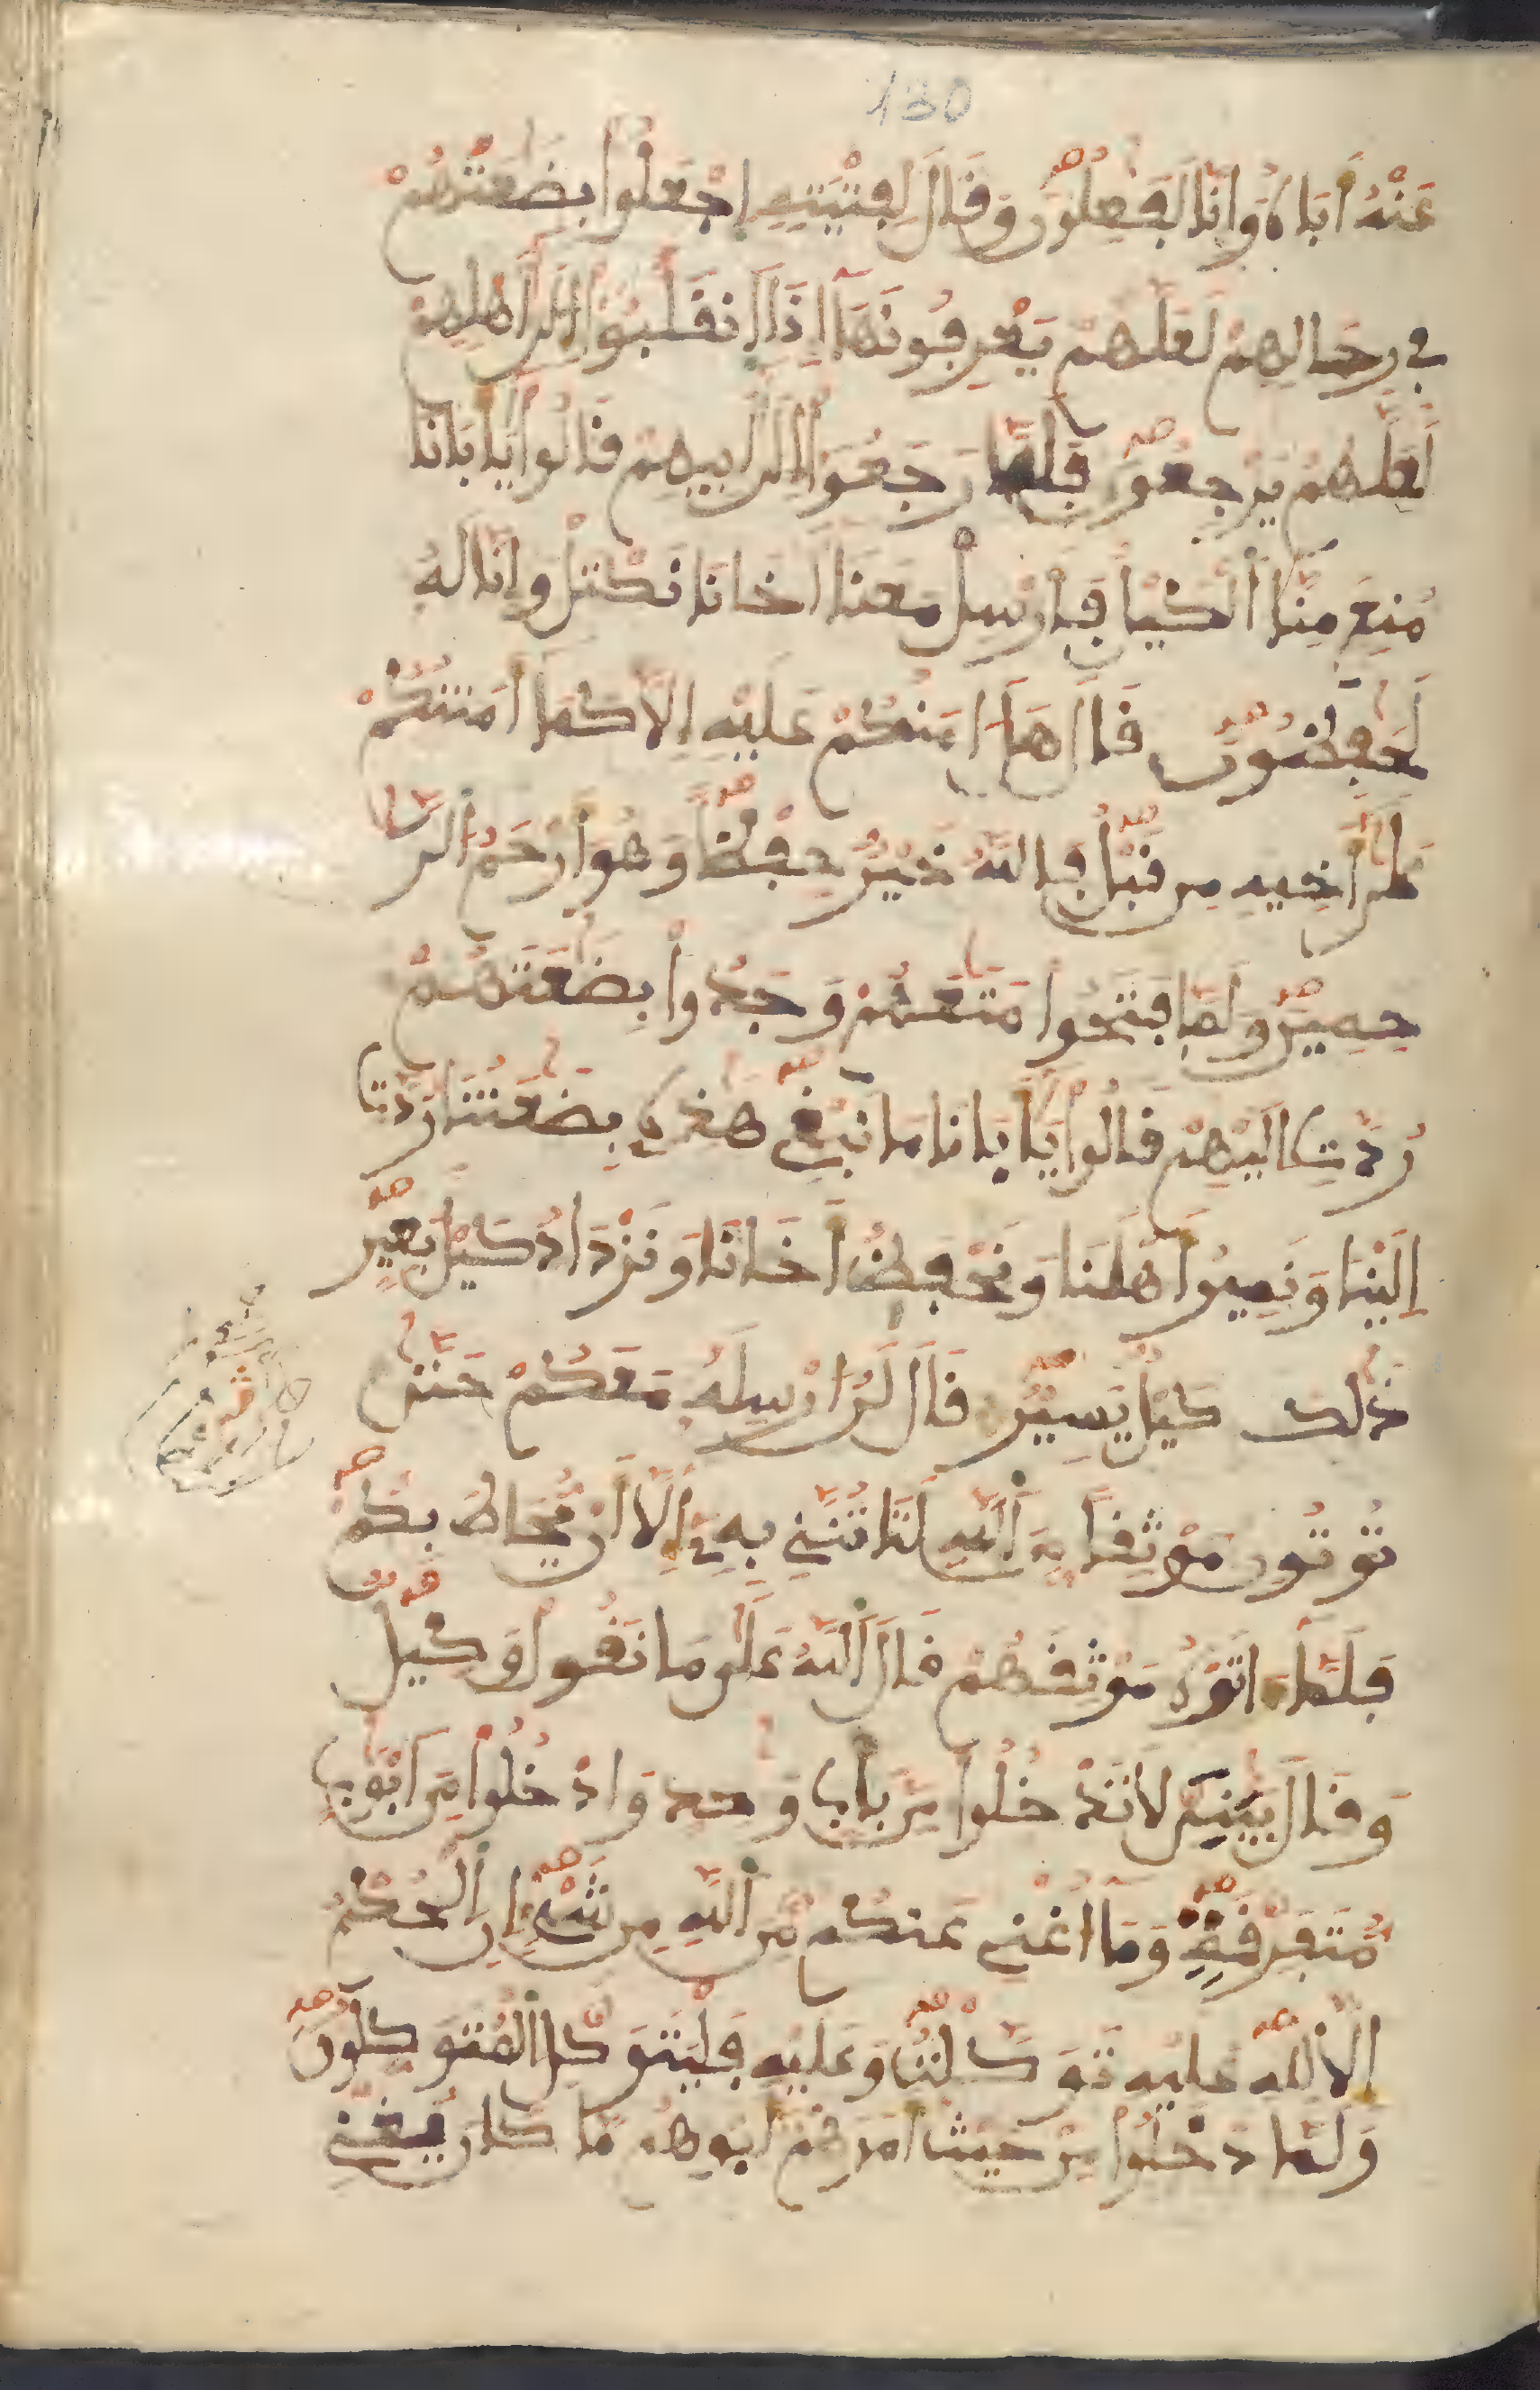 130
عَنْهُ أَبَاهُ وَإِنَّا لَفَٰعِلُونَ وَقَالَ لِفِتْيَتِهِ اِجْعَلُوا بِضَٰعَتَهُمْ
فِي رِحَالِهِمْ لَعَلَّهُمْ يَعْرِفُونَهَآ إِذَا اَنقَلَبُوٓا إِلَىٰٓ أَهْلِهِمْ
لَعَلَّهُمْ يَرْجِعُونَ فَلَمَّا رَجَعُوٓا إِلَىٰٓ أَبِيهِمْ قَالُوا يَٰٓأَبَانَا
مُنِعَ مِنَّا اَلْكَيْلُ فَأَرْسِلْ مَعَنَآ أَخَانَا نَكْتَلْ وَإِنَّا لَهُ
لَحَٰفِظُونَ قَالَ هَلْ ءَامَنُكُمْ عَلَيْهِ إِلَّا كَمَآ أَمِنتُكُمْ
عَلَىٰٓ أَخِيهِ مِن قَبْلُ فَاللَّهُ خَيْرٌ حِفْظًا وَهُوَ أَرْحَمُ اُلرَّٰ
حِمِينَ وَلَمَّا فَتَحُوا مَتَٰعَهُمْ وَجَدُوا بِضَٰعَتَهُمْ
رُدَّتِ إِلَيْهِمْ قَالُوا يَٰٓأَبَانَا مَا نَبْغِي هَٰذِهِ بِضَٰعَتُنَا رُدَّتِ
إِلَيْنَا وَنَمِيرُ أَهْلَنَا وَنَحْفَظُ أَخَانَا وَنَزْدَادُ كَيْلَ بَعِيرٍ
ذَٰلِكَ كَيْلٌ يَسِيرٌ قَالَ لَنْ أُرْسِلَهُ مَعَكُمْ حَتَّىٰ
تُوتُونِ مَوْثِقًا مِّنَ اَللَّهِ لَتَاتُنَّنِي بِهِۦٓ إِلَّآ أَنْ يُّحَاطَ بِكُمْ
فَلَمَّآ ءَاتَوْهُ مَوْثِقَهُمْ قَالَ اَللَّهُ عَلَىٰ مَا نَقُولُ وَكِيلٌ
وَقَالَ يَٰبَنِيَّ لَا تَدْخُلُوا مِنۢ بَابٍ وَٰحِدٍ وَادْخُلُوا مِنَ اَبْوَٰبٍ
مُّتَفَرِّقَةٍ وَمَآ أُغْنِي عَنكُم مِّنَ اَللَّهِ مِن شَيْءٍ إِنِ اِلْحُكْمُ
إِلَّا لِلَّهِ عَلَيْهِ تَوَكَّلْتُ وَعَلَيْهِ فَلْيَتَوَكَّلِ اِلْمُتَوَكِّلُونَ
وَلَمَّا دَخَلُوا مِنْ حَيْثُ أَمَرَهُمْ أَبُوهُم مَّا كَانَ يُغْنِي